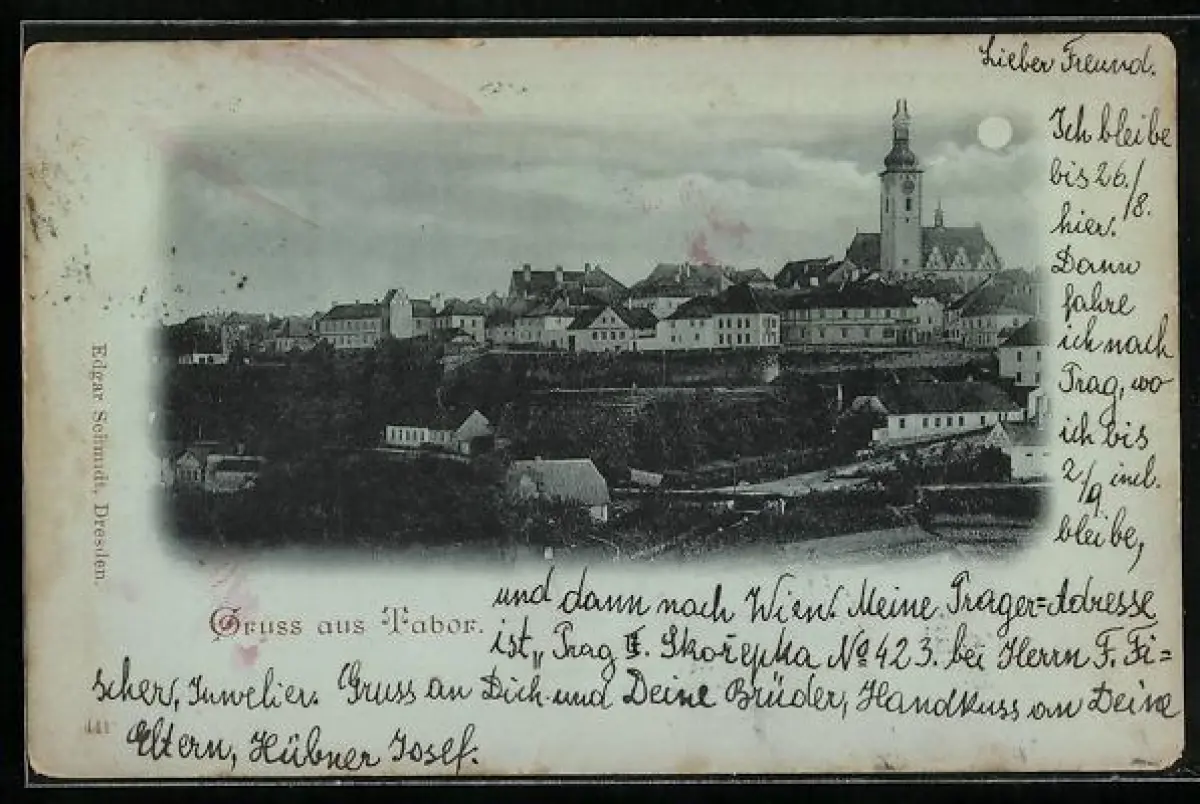 Lieber Freund.
Ich bleibe
bis 26./8.
hier.
Dann
fahre
ich nach
Prag, wo
ich bis
2/9 incl.
bleibe,
und dann nach Wien. Meine Prager=Adresse
ist „Prag I. Skořepka No 423. bei Herrn F. Fi=
scher, Juwelier. Gruss an Dich und Deine Brüder, Handkuss an Deine
Eltern, Hübner Josef.
Gruss aus Tabor.
Edgar Schmidt, Dresden.
441